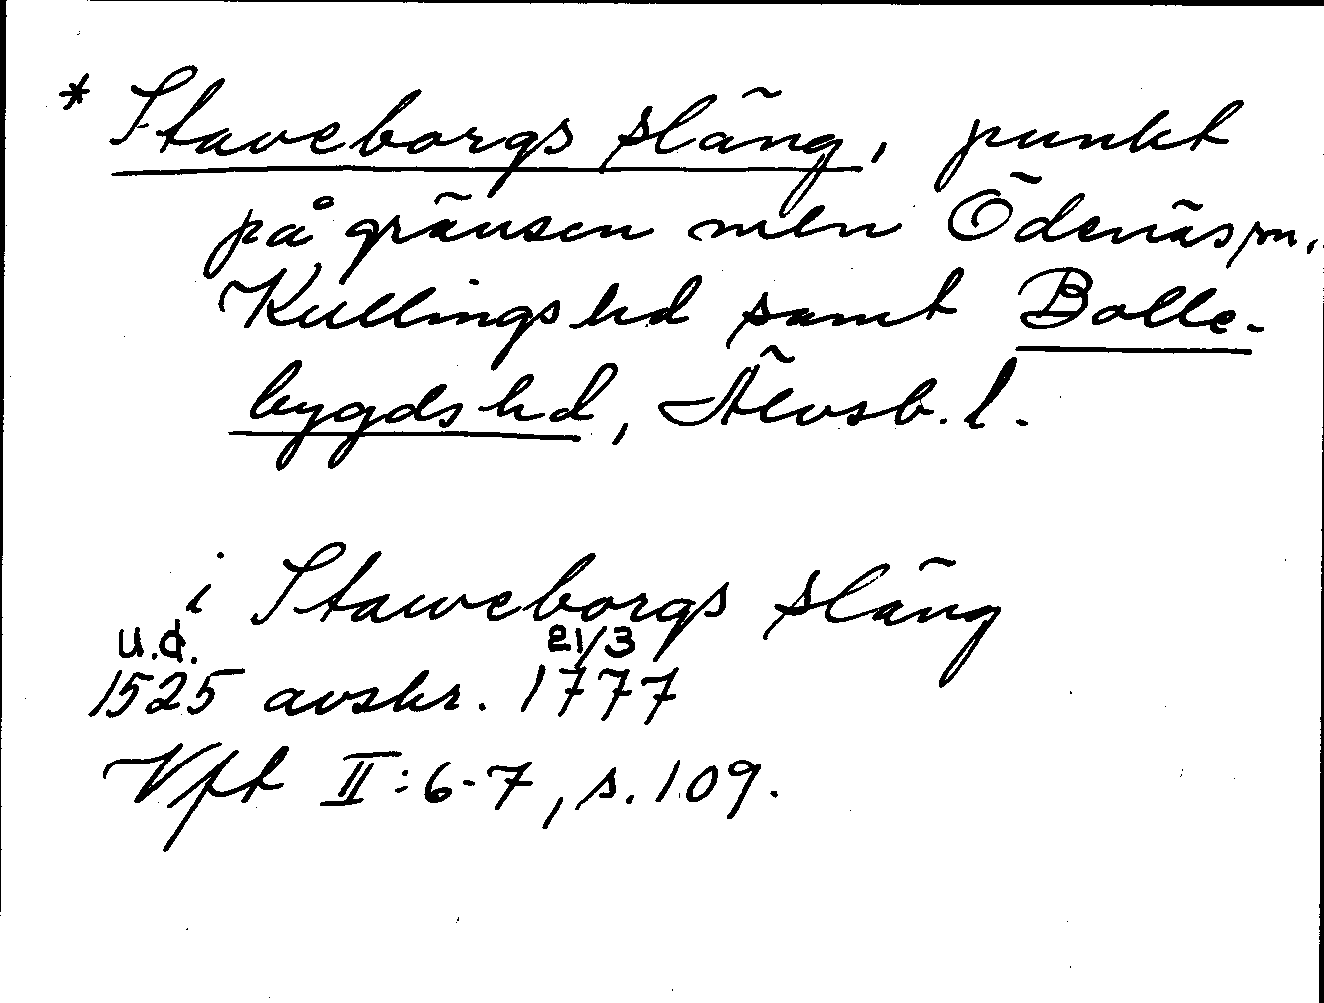 * Staveborgs släng, punkt
på gränsen mln Ödenäs sn,
Kullings hd samt Bolle-
bygds hd, Älvsb. l.
i Staweborgs släng
u.d. 21/3
1525 avskr. 1777
Vft II:6-7, s. 109.